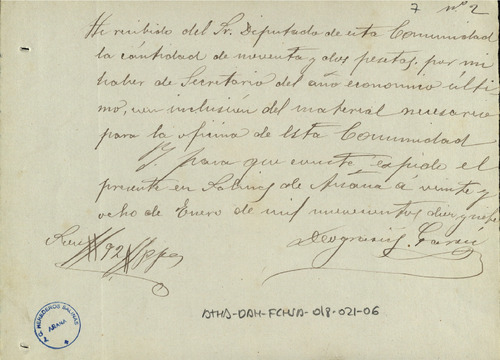 7 nº 2
He recibido del Sr. Diputado de esta Comunidad
la cantidad de noventa y dos pesetas, por mi
haber de Secretario del año economico últi
mo, con inclusion del material necesario
para la oficina de esta Comunidad
Y para que conste expido el
presente en Salinas de Añana á veinte y
ocho de Enero de mil novecientos diez y siete
Deogracias
Son # 92 # ptas
T. C. HEREDEROS SALINAS
AÑANA
ATHA-DAH-FCHSA-018-021-06